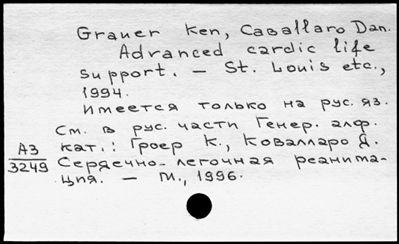 Grauer Ken, Cavallaro Dan.
Advanced cardic life
support. — St. Louis etc.,
1994.
Имеется только на рус. яз.
См. в рус. части Генер. алф.
кат.: Гроер К., Кавалларо Д.
Сердечно-легочная реанима-
ция. — М., 1996.
А3
3249